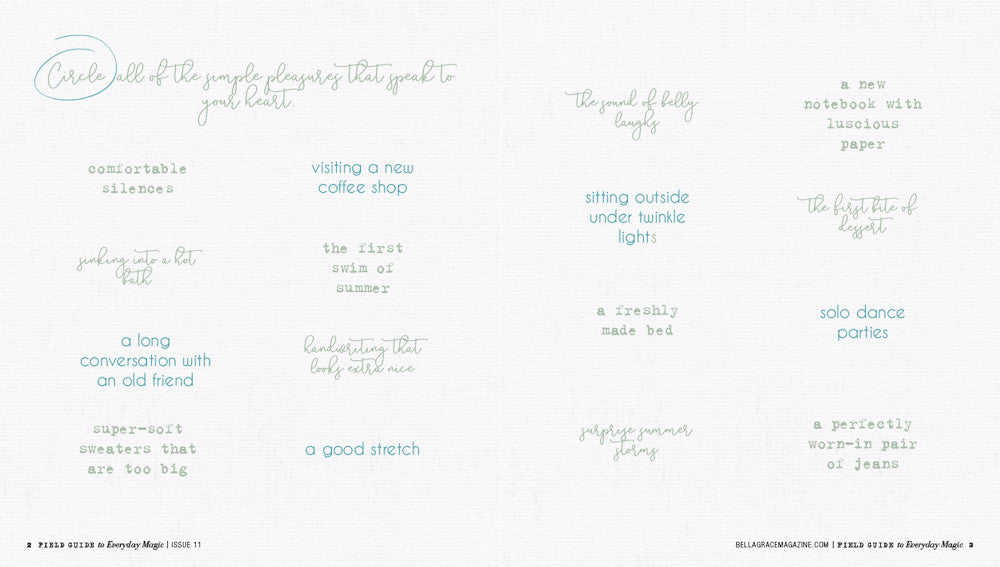 Circle all of the simple pleasures that speak to
your heart.
comfortable
silences
visiting a new
coffee shop
sinking into a hot
bath
the first
swim of
summer
a long
conversation with
an old friend
handwriting that
looks extra nice
super-soft
sweaters that
are too big
a good stretch
2 FIELD GUIDE to Everyday Magic | ISSUE 11
the sound of belly
laughs
a new
notebook with
luscious
paper
sitting outside
under twinkle
lights
the first bite of
dessert
a freshly
made bed
solo dance
parties
surprise summer
storms
a perfectly
worn-in pair
of jeans
BELLAGRACEMAGAZINE.COM | FIELD GUIDE to Everyday Magic 3